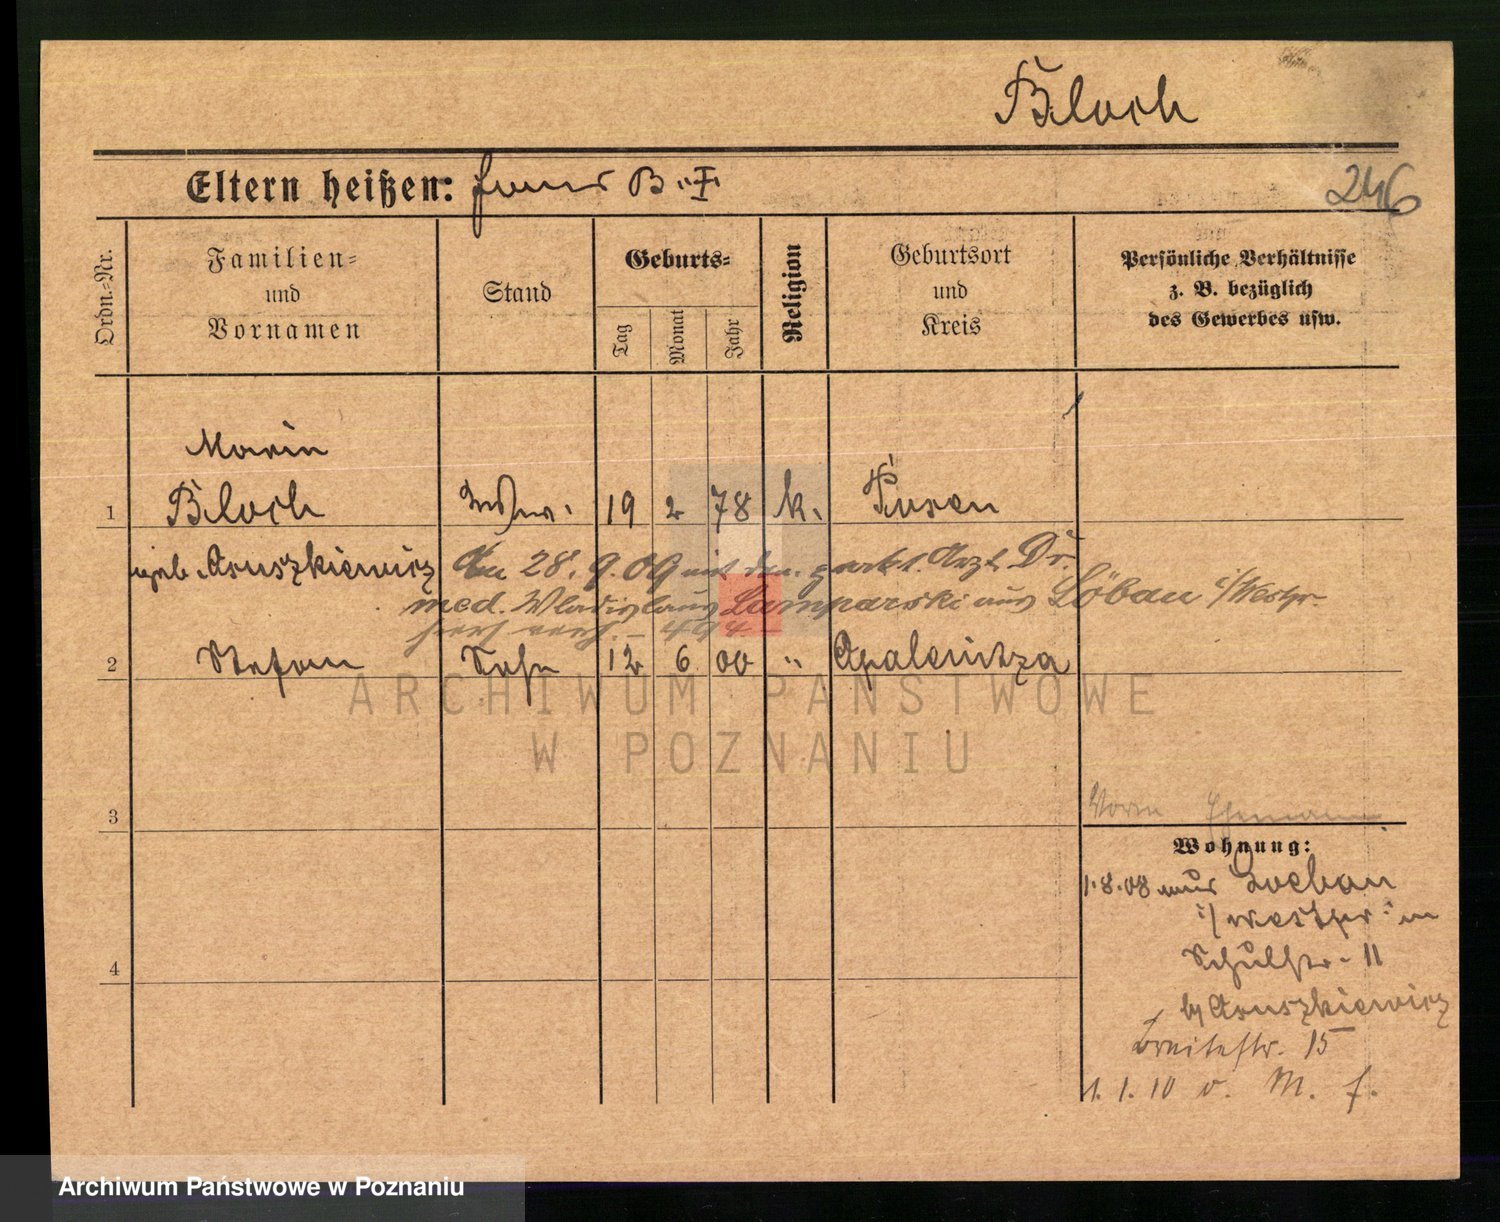 Bloch
Eltern heißen: B.
246
Ordn.-Nr.
Familien-
und
Vornamen
Stand
Geburts-
Tag
Monat
Jahr
Religion
Geburtsort
und
Kreis
Persönliche Verhältnisse
z. B. bezüglich
des Gewerbes usw.
Maria
1 Bloch 19 2 78 k. Posen
geb. Aruszkiewicz Am 28.9.09 mit dem prakt. Arzt Dr.
med. Wladislaus Lamparski aus Löbau i/Westpr.
494
2 Stefan Sohn 12 6 00 " Opalenitza
3
4
Ehemann
Wohnung:
1.8.08 Loebau
i/Westpr
Schulstr. 11
b/ Aruszkiewicz
Breitestr. 15
1.1.10 v. M. f.
ARCHIWUM PAŃSTWOWE
W POZNANIU
Archiwum Państwowe w Poznaniu